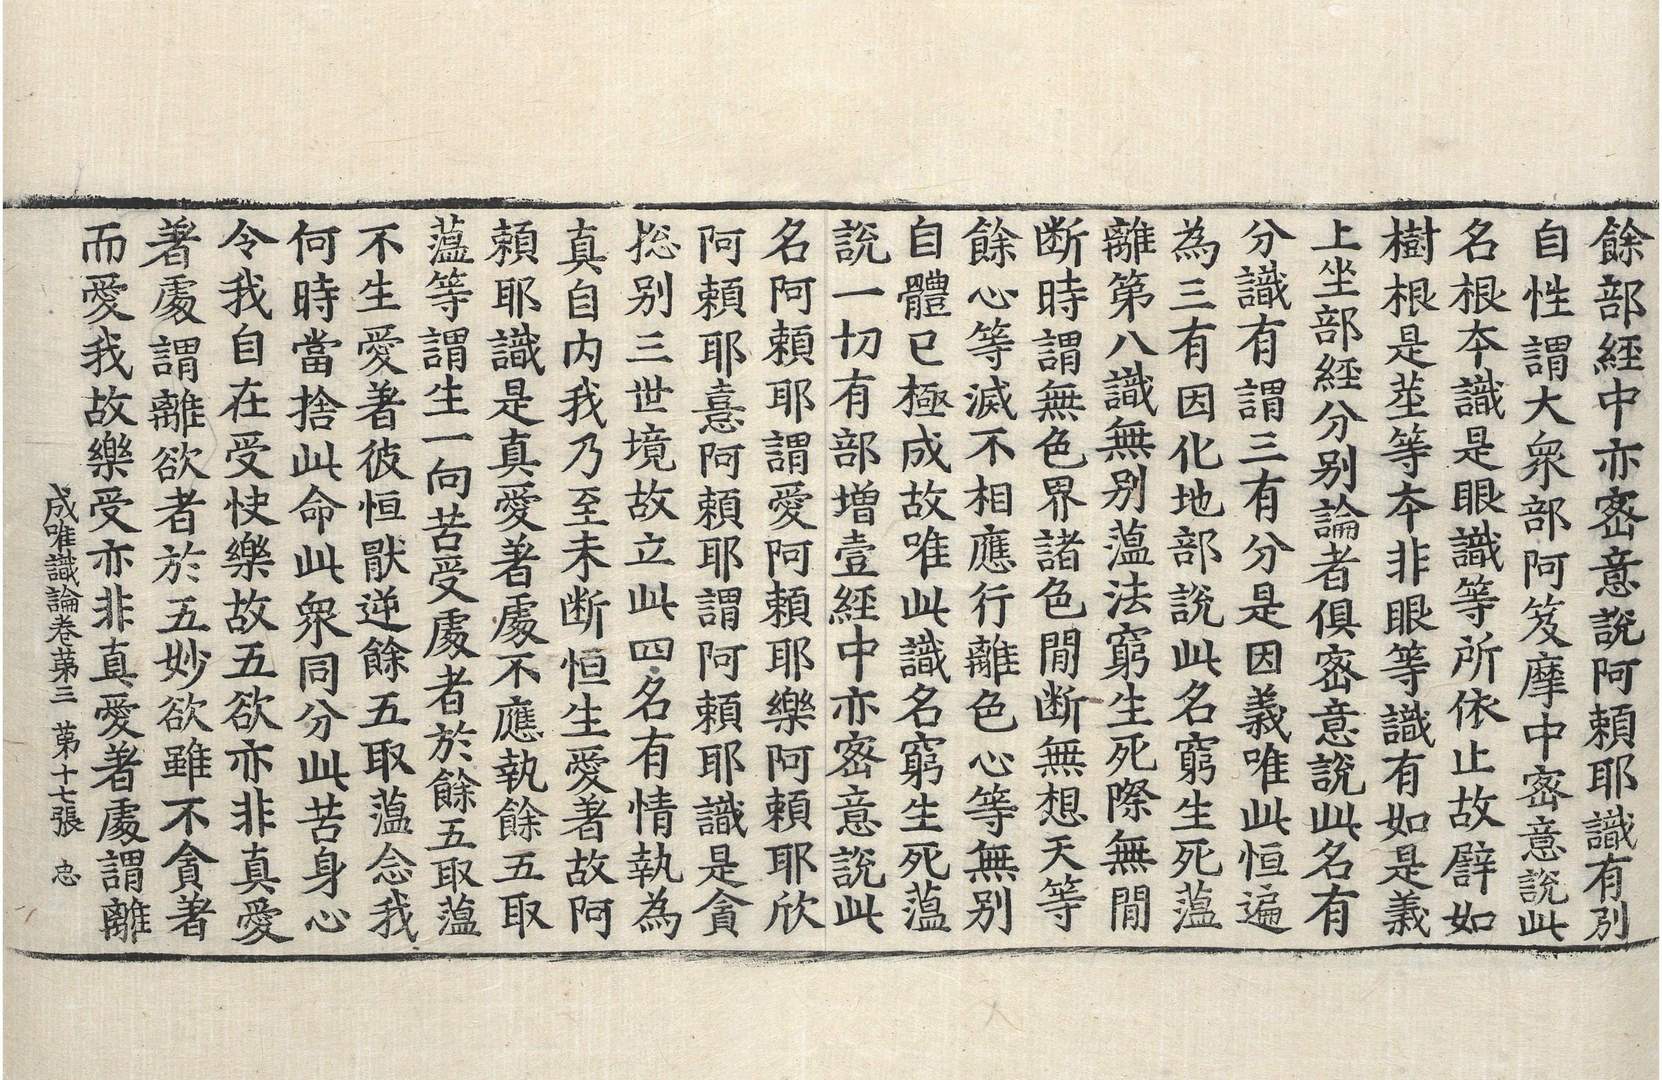 餘部經中亦宻意說阿頼耶識有別
自性謂大衆部阿笈摩中宻意說此
名根本識是眼識等所依止故譬如
樹根是莖等本非眼等識有如是義
上坐部經分别論者俱宻意說此名有
分識有謂三有分是因義唯此恒遍
為三有因化地部說此名窮生死蕰
離第八識無别蕰法窮生死際無閒
断時謂無色界諸色閒断無想天等
餘心等滅不相應行離色心等無别
自體已極成故唯此識名窮生死蕰
說一切有部增壹經中亦宻意說此
名阿頼耶謂愛阿頼耶樂阿頼耶欣
阿頼耶憙阿頼耶謂阿頼耶識是貪
揔别三世境故立此四名有情執為
真自内我乃至未断恒生愛著故阿
頼耶識是真愛著處不應執餘五取
蕰等謂生一向苦受處者於餘五取蕰
不生愛著彼恒猒逆餘五取蕰念我
何時當捨此命此衆同分此苦身心
令我自在受快樂故五欲亦非真愛
著處謂離欲者於五妙欲雖不貪著
而愛我故樂受亦非真愛著處謂離
成唯識論卷苐三 苐十七張 忠